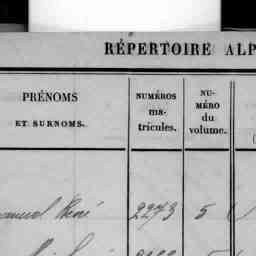 RÉPERTOIRE ALP
PRÉNOMS
ET SURNOMS.
NUMÉROS
ma-
tricules.
NU-
MÉRO
du
volume.
René 2273 5